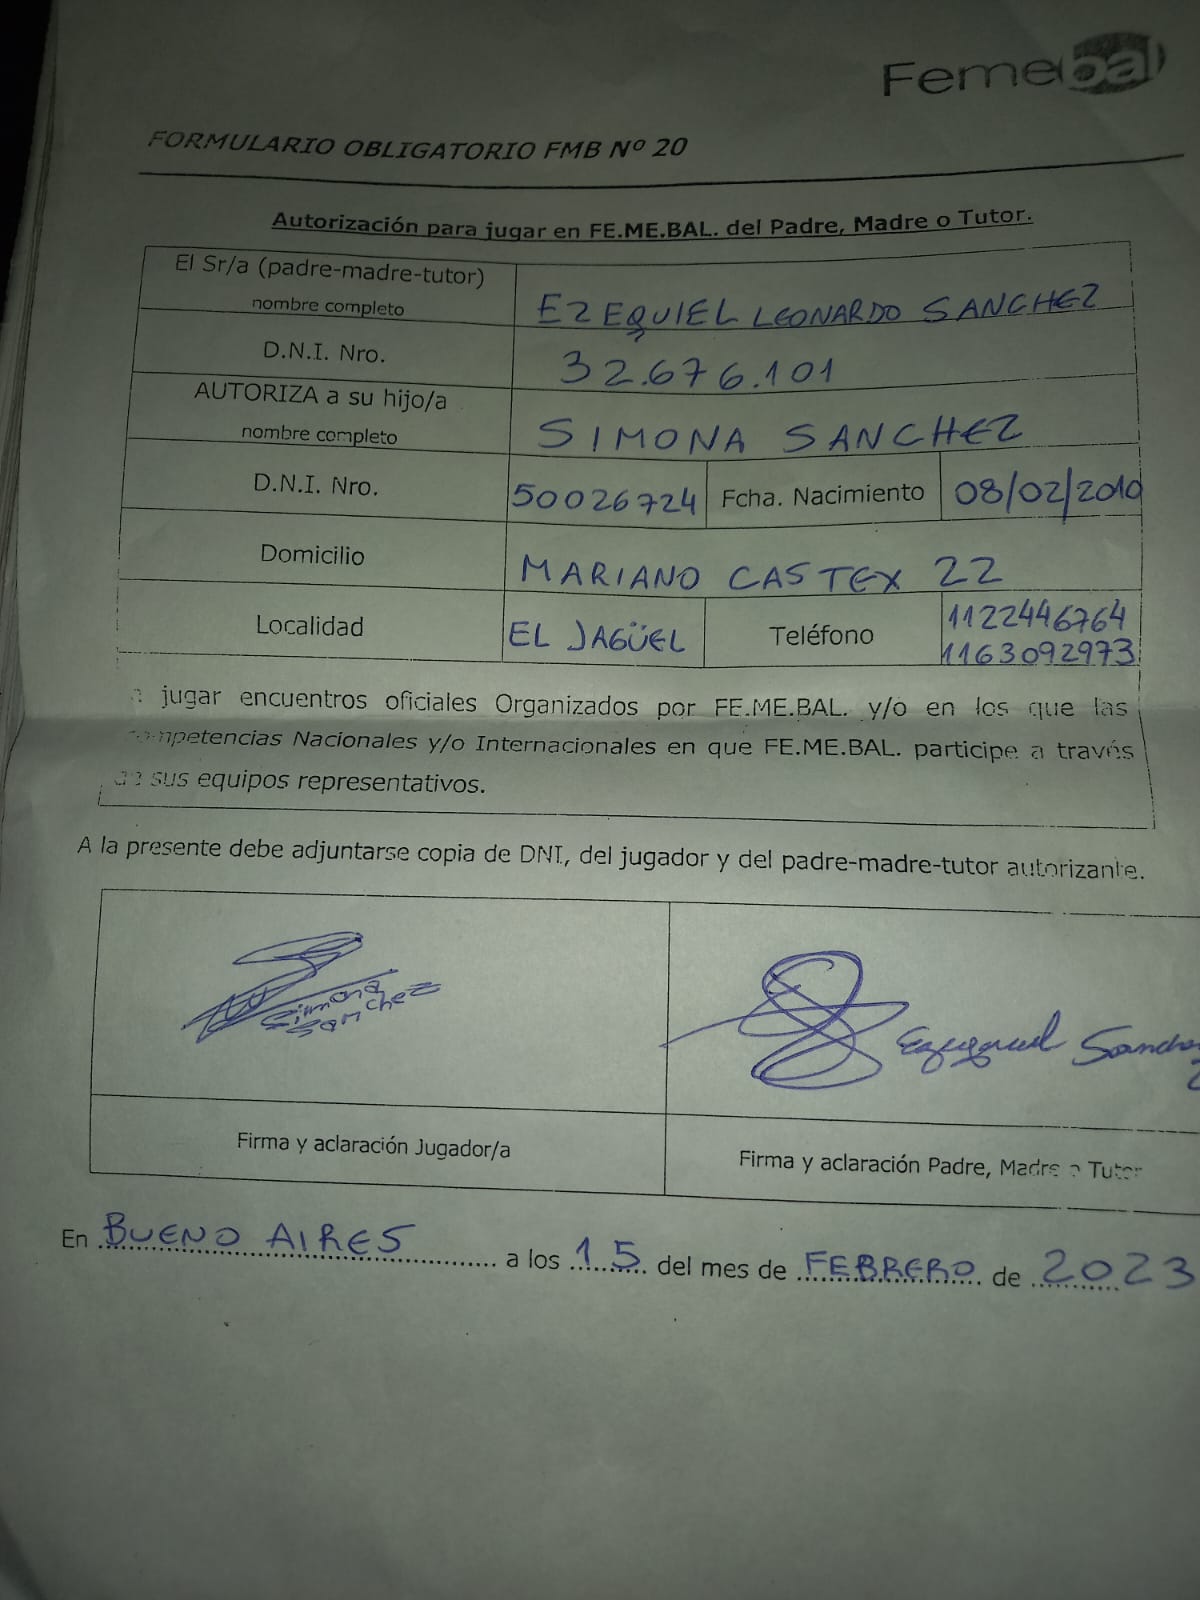 Femebal
FORMULARIO OBLIGATORIO FMB Nº 20
Autorización para jugar en FE.ME.BAL. del Padre, Madre o Tutor.
El Sr/a (padre-madre-tutor)
nombre completo
EZEQUIEL LEONARDO SANCHEZ
D.N.I. Nro.
32.676.101
AUTORIZA a su hijo/a
nombre completo
SIMONA SANCHEZ
D.N.I. Nro.
50026724
Fcha. Nacimiento
08/02/2010
Domicilio
MARIANO CASTEX 22
Localidad
EL JAGÜEL
Teléfono
1122446764
1163092973
a jugar encuentros oficiales Organizados por FE.ME.BAL. y/o en los que las
competencias Nacionales y/o Internacionales en que FE.ME.BAL. participe a través
de sus equipos representativos.
A la presente debe adjuntarse copia de DNI, del jugador y del padre-madre-tutor autorizante.
Simona
Sanchez
Ezequiel Sanchez
Firma y aclaración Jugador/a
Firma y aclaración Padre, Madre o Tutor
En BUENO AIRES a los 15 del mes de FEBRERO de 2023